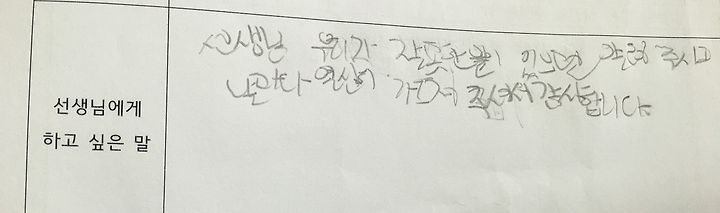 선생님 우리가 잘못한 일이 있으면 알려 주시고
날마다 열심히 가르쳐 주셔서 감사합니다
선생님에게
하고 싶은 말